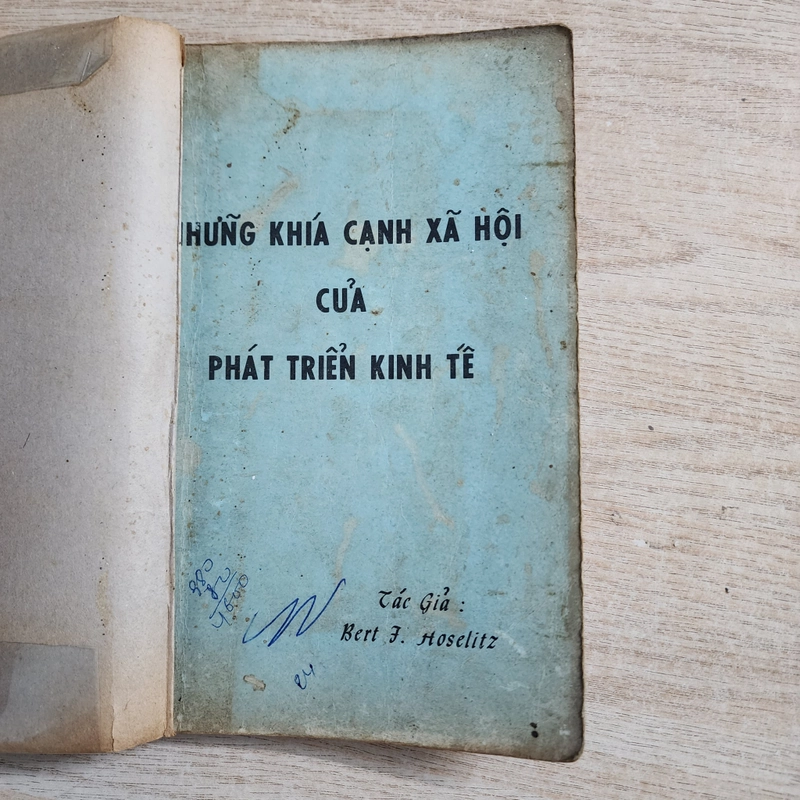 NHỮNG KHÍA CẠNH XÃ HỘI
CỦA
PHÁT TRIỂN KINH TẾ
Tác Giả :
Bert F. Hoselitz
24